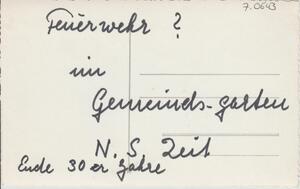 7.0643
Feuerwehr ?
im
Gemeinds-garten
N.S. Zeit
Ende 30er Jahre